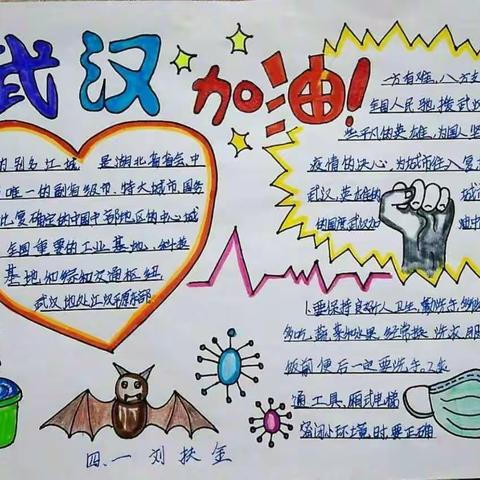 武汉加油!
别名江城,是湖北省省会,中
唯一的副省级市,特大城市,国务
批复确定的中国中部地区的中心城
全国重要的工业基地、科教
基地和综合交通枢纽
武汉地处江汉平原东部
一方有难,八方支
全国人民驰援武汉
些平凡的英雄,为国人坚
疫情的决心,为城市注入
武汉,英雄的
1.要保持良好个人卫生,勤洗手,多
多吃蔬菜和水果,经常换洗衣服
饭前便后一定要洗手。2.乘
通工具、厢式电梯
密闭小环境时,要正确
四、一 刘扶金